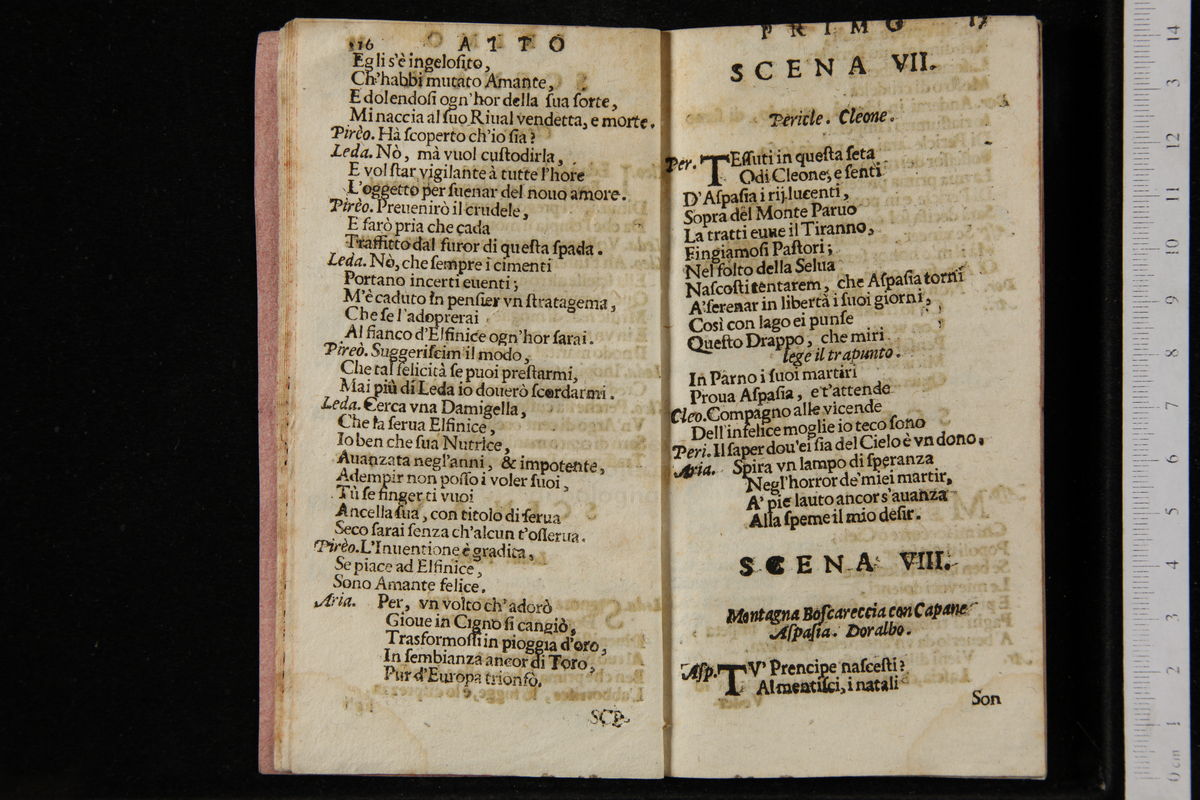 16 ATTO
Egli s'è ingelosito,
Ch'habbi mutato Amante,
E dolendosi ogn'hor della sua sorte,
Minaccia al suo Riual vendetta, e morte.
Pirèo. Hà scoperto ch'io sia?
Leda. Nò, mà vuol custodirla,
E vol star vigilante à tutte l'hore
L'oggetto per suenar del nouo amore.
Pirèo. Preuenirò il crudele,
E farò pria che cada
Traffitto dal furor di questa spada.
Leda. Nò, che sempre i cimenti
Portano incerti euenti;
M'è caduto in pensier vn stratagema,
Che se l'adoprerai
Al fianco d'Elfinice ogn'hor sarai.
Pireò. Suggeriscim il modo,
Che tal felicità se puoi prestarmi,
Mai più di Leda io douerò scordarmi.
Leda. Cerca vna Damigella,
Che la serua Elfinice,
Io ben che sua Nutrice,
Auanzata negl'anni, & impotente,
Adempir non posso i voler suoi,
Tù se finger ti vuoi
Ancella sua, con titolo di serua
Seco sarai senza ch'alcun t'osserua.
Pirèo. L'Inuentione è gradita,
Se piace ad Elfinice,
Sono Amante felice.
Aria. Per, vn volto ch'adorò
Gioue in Cigno si cangiò,
Trasformossi in pioggia d'oro,
In sembianza ancor di Toro,
Pur d'Europa trionfò.
SCE-
PRIMO 17
SCENA VII.
Pericle. Cleone.
Per. TEssuti in questa seta
Odi Cleone, e senti
D'Aspasia i rij lucenti,
Sopra del Monte Paruo
La tratti eune il Tiranno,
Fingiamosi Pastori;
Nel folto della Selua
Nascosti tentarem, che Aspasia torni
A' serenar in libertà i suoi giorni,
Così con lago ei punse
Questo Drappo, che miri
lege il trapunto.
In Parno i suoi martiri
Proua Aspasia, e t'attende
Cleo. Compagno alle vicende
Dell'infelice moglie io teco sono
Peri. Il saper dou'ei sia del Cielo è vn dono.
Aria. Spira vn lampo di speranza
Negl'horror de' miei martir,
A' pie lauto ancor s'auanza
Alla speme il mio desir.
SCENA VIII.
Montagna Boscareccia con Capane
Aspasia. Doralbo.
Asp. TV' Prencipe nascesti?
Almentisci, i natali
Son